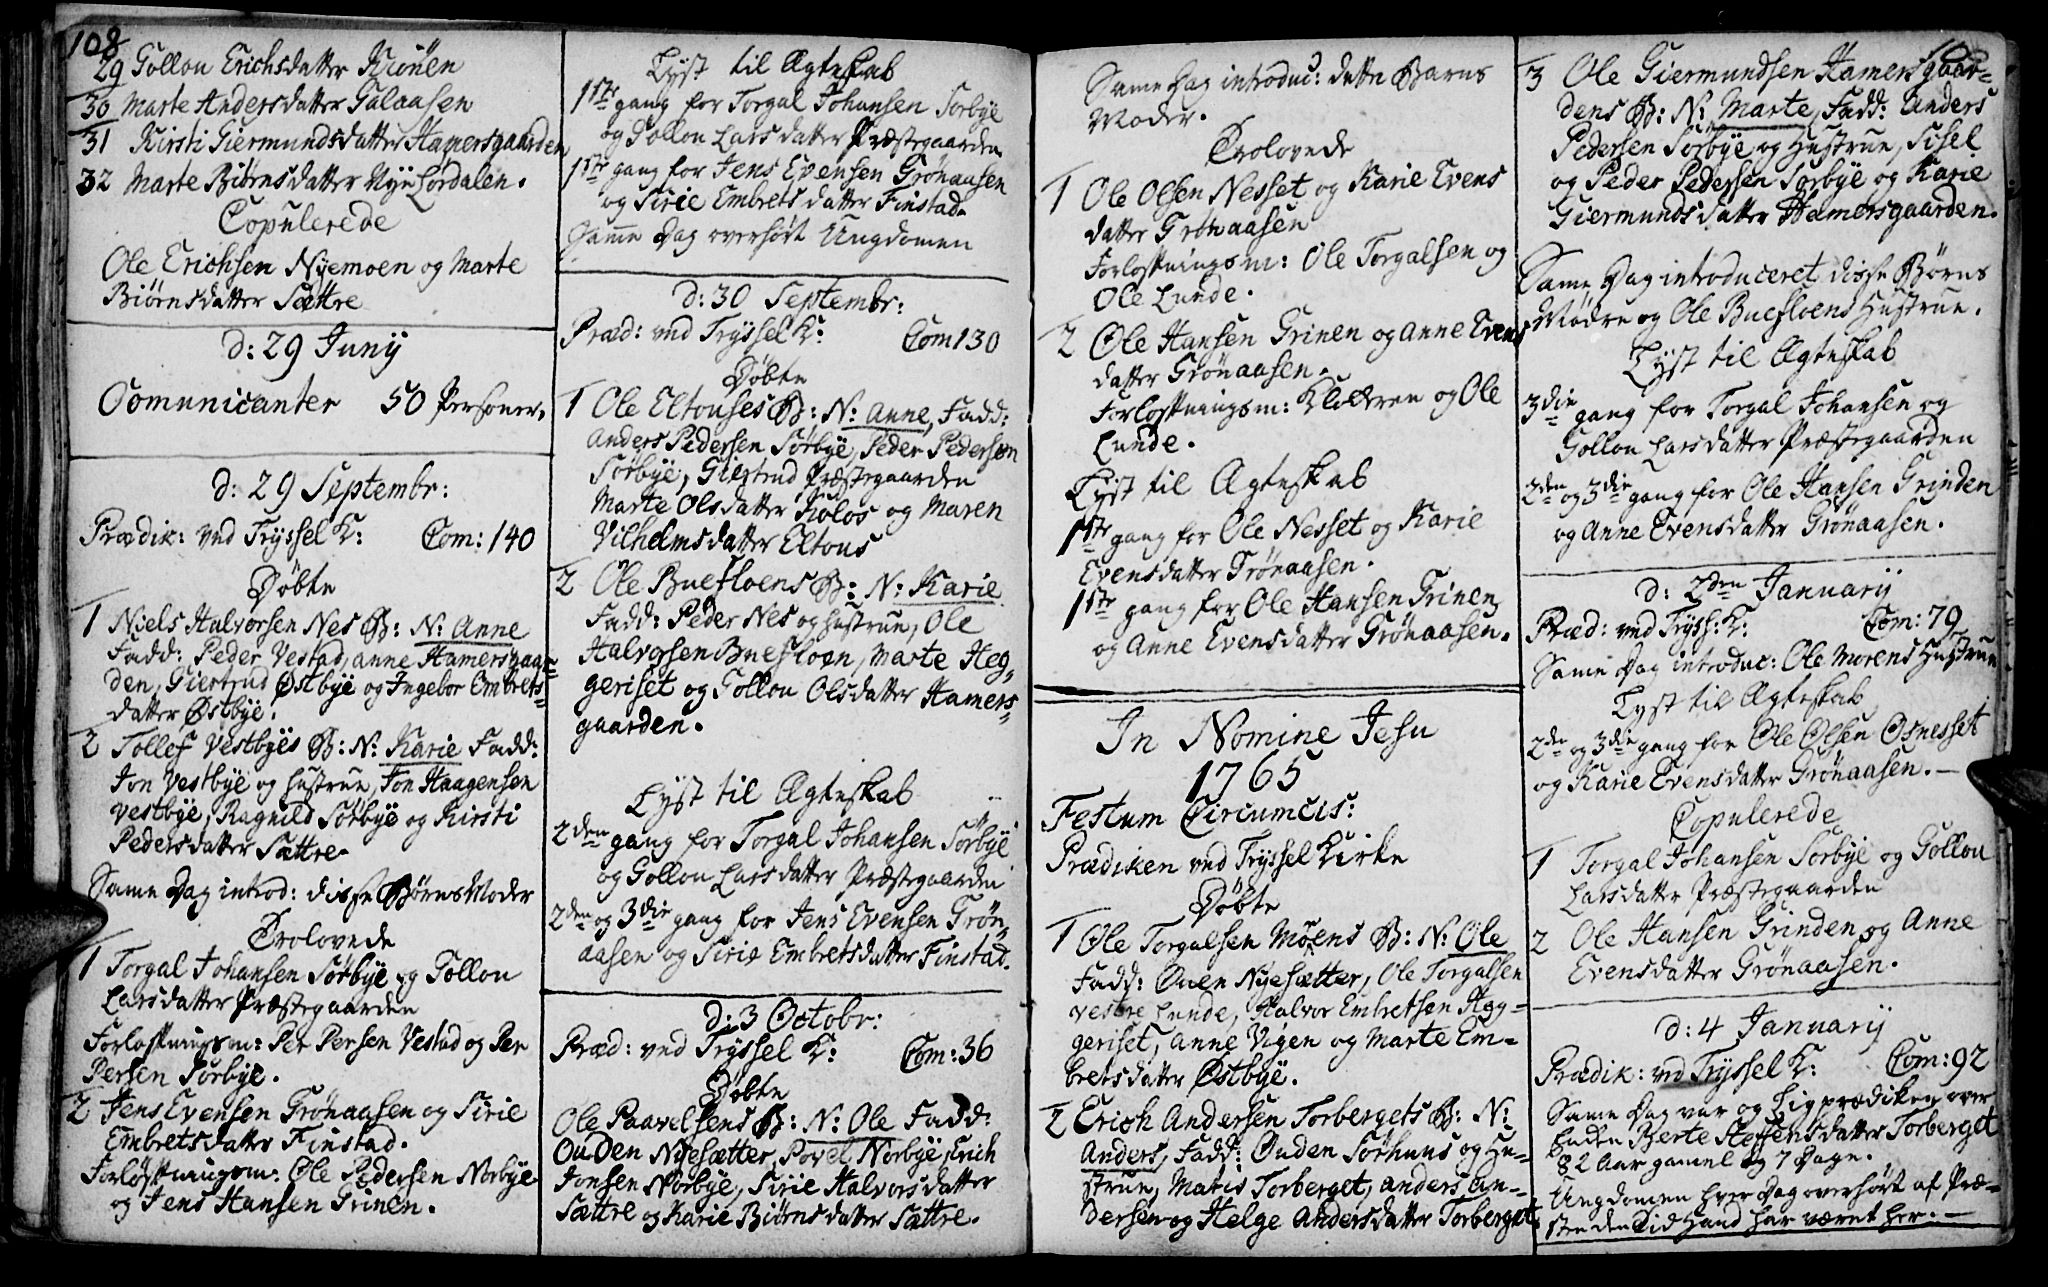 108
29 Gollou Erichsdatter Kiönen
30 Marte Andersdatter Galaasen
31 Kirsti Giermundsdatter Hamersgaarden
32 Marte Biørnsdatter Nye Lordalen.
Copulerede
Ole Erichsen Nyemoen og Marte
Biørnsdatter Sættre
d: 29 Junij
Comunicanter 50 Personer,
d: 29 Septembr:
Prædik: ved Tryssel K: Com: 140
Døbte
1 Niels Halvorsen Nes B: N: Anne
Fadd: Peder Vestad, Anne Hamersgaar=
den, Giertrud Østbye og Ingebor Embrets=
datter Østbye.
2 Tollef Vestbyes B: N: Karie Fadd:
Jon Vestbye og Hustrue, Jon Haagensen
Vestbye, Ragnild Sørbye og Kirsti
Pedersdatter Sættre
Same Dag introd: disse Børns Moder
Trolovede
1 Torgal Johansen Sørbye og Gollou
Larsdatter Præstegaarden
Forlofningsm: Per Persen Vestad og Per
Persen Sørbye.
2 Jens Evensen Grönaasen og Sirie
Embretsdatter Finstad.
Forlöfningsm: Ole Pedersen Norbye
og Jens Hansen Grinen.
Lyst til Ægteskab
1ste gang for Torgal Johansen Sorbye
og Gollou Larsdatter Præstegaarden
1ste gang for Jens Evensen Grönaasen
og Sirie Embretsdatter Finstad.
Same Dag overhört Ungdomen
d: 30 Septembr:
Præd: ved Tryssel K: Com 130
Døbte
1 Ole Eltouses B: N: Anne, Fadd:
Anders Pedersen Sørbye, Peder Pedersen
Sørbye, Giertrud Præstegaarden
Marte Olsdatter Kolos og Maren
Vilhelmsdatter Eltous
2 Ole Buefloens B: N: Karie
Fadd: Peder Nes og Hustrue, Ole
Halvorsen Buefloen, Marte Heg,
geriset og Gollou Olsdatter Hamers=
gaarden.
Lyst til Ægteskab
2den gang for Torgal Johansen Sørbye
og Gollou Larsdatter Præstegaarden
2den og 3die gang for Jens Evensen Grön,
aasen og Sirie Embretsdatter Finstad.
d: 3 Octobr:
Præd: ved Tryssel K: Com: 36
Døbte
Ole Paavelsens B: N: Ole Fadd:
Ouden Nyesætter, Povel Norbye, Erich
Jonsen Norbye, Sirie Halvorsdatter
Sættre og Karie Biørnsdatter Sættre.
Same Dag introduc: dette Barns
Moder.
Trolovede
1 Ole Olsen Nesset og Karie Evens
datter Grönaasen
Forlofningsm: Ole Torgalsen og
Ole Lunde.
2 Ole Hansen Grinen og Anne Evens
datter Grönaasen.
Forlofningsm: Klokkeren og Ole
Lunde.
Lyst til Ægteskab
1ste gang for Ole Nesset og Karie
Evensdatter Grönaasen.
1ste gang for Ole Hansen Grinen
og Anne Evensdatter Grönaasen.
In Nomine Jesu
1765
Festum Circumcis:
Prædiken ved Tryssel Kirke
Døbte
1 Ole Torgalsen Möens B: N: Ole
Fadd: Ouen Nyesætter, Ole Torgalsen
vestre Lunde, Halvor Embretsen Heg=
geriset, Anne Vigen og Marte Em=
bretsdatter Østbye.
2 Erich Andersen Torbergets B: N:
Anders, Fadd: Ouden Sørhuus og Hu=
strue, Matis Torberget, Anders An=
dersen og Helge Andersdatter Torberget.
3 Ole Giermundsen Hamersgaar=
dens B: N: Marte, Fadd: Anders
Pedersen Sørbye og Hustrue, Sisel
og Peder Pedersen Sorbye og Karie
Giermundsdatter Hamersgaarden.
Same Dag introduceret disse Børns
Mödre og Ole Buefloens Hustrue.
Lyst til Ægteskab
3die gang for Torgal Johansen og
Gollou Larsdatter Præstegaarden
2den og 3die gang for Ole Hansen Grinden
og Anne Evensdatter Grönaasen.
d: 2den Januarij
Præd: ved Tryss: K: Com: 79
Same Dag introduc: Ole Morens Hustrue
Lyst til Ægteskab
2den og 3die gang for Ole Olsen Osnesset
og Karie Evensdatter Grönaasen.
Copulerede
1 Torgal Johansen Sorbye og Gollou
Larsdatter Præstegaarden
2 Ole Hansen Grinden og Anne
Evensdatter Grönaasen.
d: 4 Januarij
Prædik: ved Tryssel K: Com: 92
Same Dag var og Ligprædiken over
Enken Berte Steffensdatter Torberget
82 Aar gamel og 7 Dage.
Ungdomen hver Dag overhört af Præ=
sten den Tid Hand har været her.